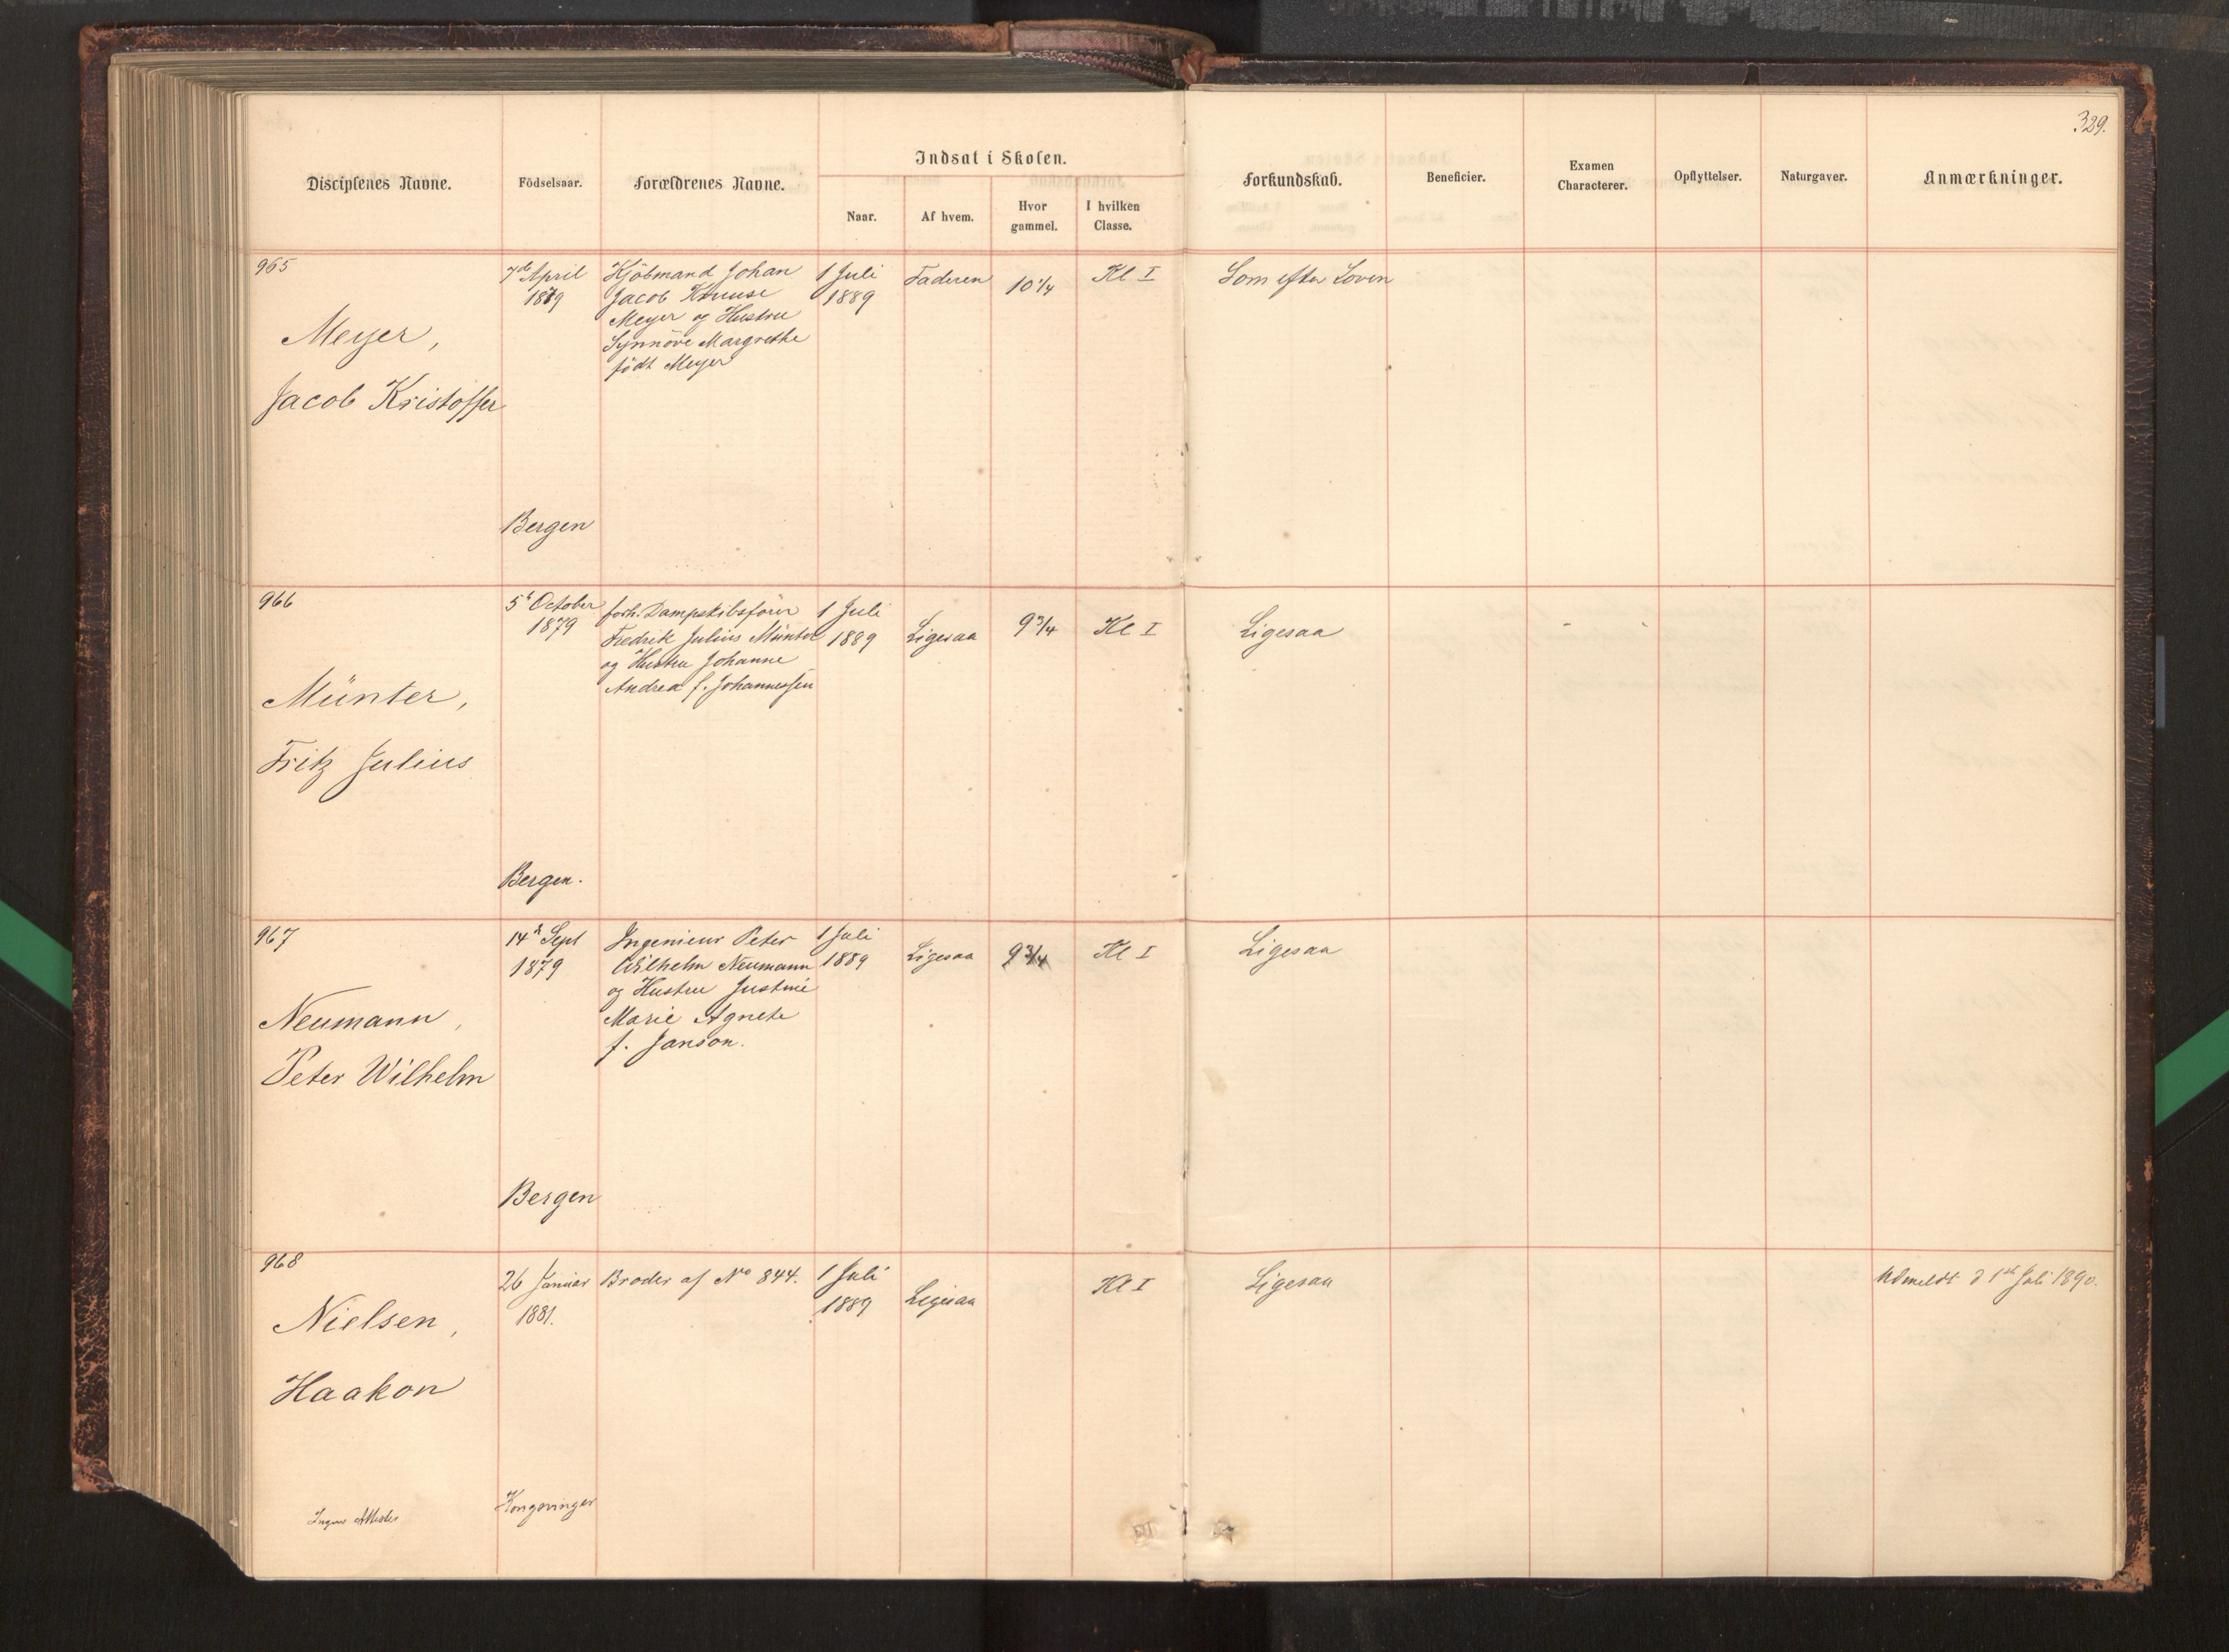 329.
Indsat i Skolen.
Disciplenes Navne. Födselsaar. Forældrenes Navne. Naar. Af hvem. Hvor gammel. I hvilken Classe. Forkundskab. Beneficier. Examen Characterer. Opflyttelser. Naturgaver. Anmærkninger.
965
Meyer,
Jacob Kristoffer
7de April
1879
Bergen
Kjöbmand Johan
Jacob Kruuse
Meyer og Hustru
Synnöve Margrethe
födt Meyer
1 Juli
1889
Faderen
10 1/4
Kl I
Som efter Loven
966
Münter,
Fritz Julius
5t October
1879
Bergen.
forh. Dampskibsförer
Fredrik Julius Münter
og Hustru Johanne
Andrea f. Johannessen
1 Juli
1889
Ligesaa
9 3/4
Kl I
Ligesaa
967
Neumann,
Peter Wilhelm
14de Sept
1879
Bergen
Ingenieur Peter
Wilhelm Neumann
og Hustru Justine
Marie Agnete
f. Janson.
1 Juli
1889
Ligesaa
9 3/4
Kl I
Ligesaa
968
Nielsen,
Haakon
Ingen Attester
26 Januar
1881.
Kongsvinger
Broder af No 844.
1 Juli
1889
Ligesaa
Kl I
Ligesaa
Udmeldt d 1ste Juli 1890.